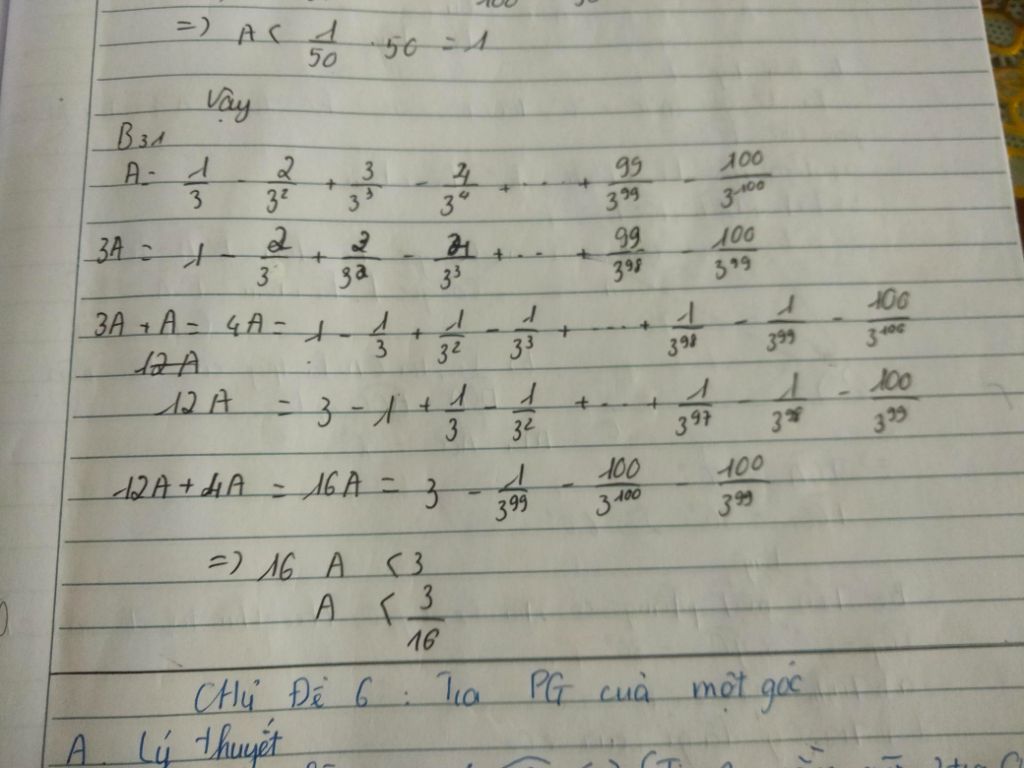 =) A < 1/50 . 50 = 1
Vậy
B31
A = 1/3 - 2/3² + 3/3³ - 4/3⁴ + ... + 99/3⁹⁹ - 100/3¹⁰⁰
3A = 1 - 2/3 + 3/3² - 4/3³ + ... + 99/3⁹⁸ - 100/3⁹⁹
3A + A = 4A = 1 - 1/3 + 1/3² - 1/3³ + ... + 1/3⁹⁸ - 1/3⁹⁹ - 100/3¹⁰⁰
12A
12A = 3 - 1 + 1/3 - 1/3² + ... + 1/3⁹⁷ - 1/3⁹⁸ - 100/3⁹⁹
12A + 4A = 16A = 3 - 1/3⁹⁹ - 100/3¹⁰⁰ - 100/3⁹⁹
=) 16 A < 3
A < 3/16
Chủ Đề 6 : Tia PG cuả một góc
A. Lý thuyết